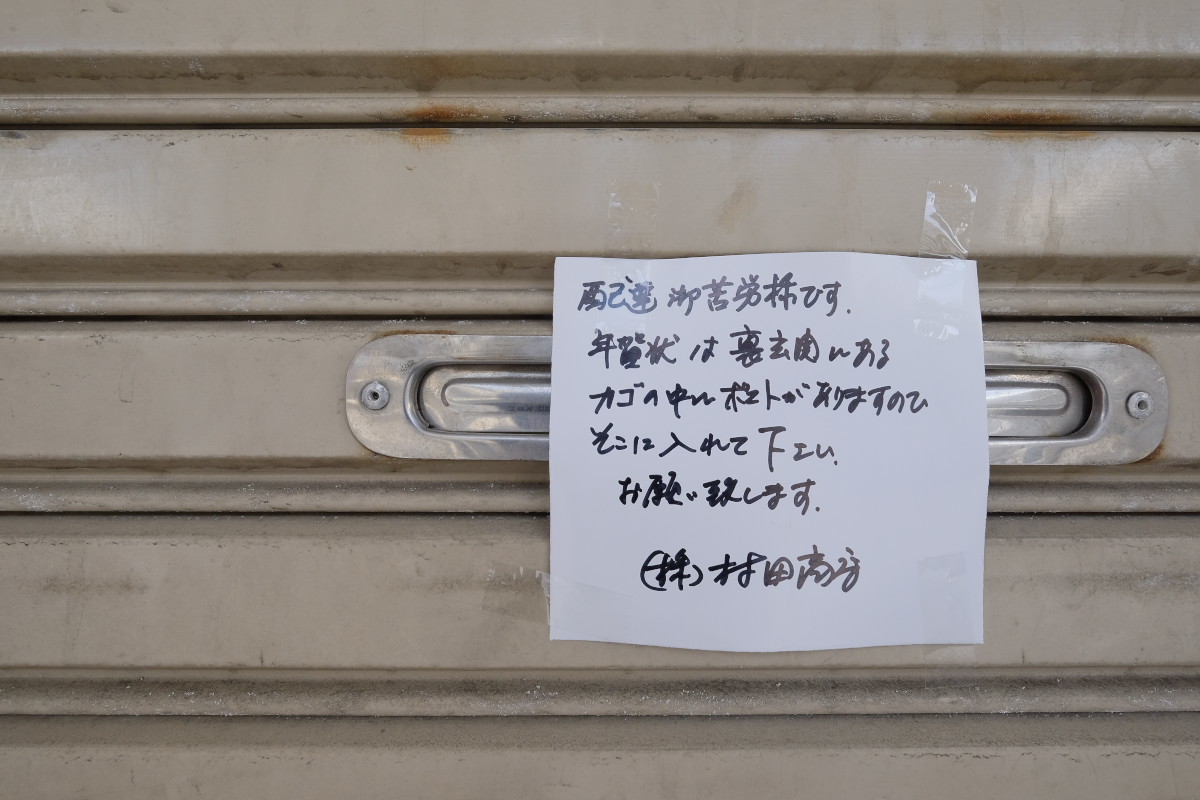 配達御苦労様です.
年賀状は裏玄関にある
カゴの中にポストがありますので
そこに入れて下さい.
お願い致します.
(株)村田商店